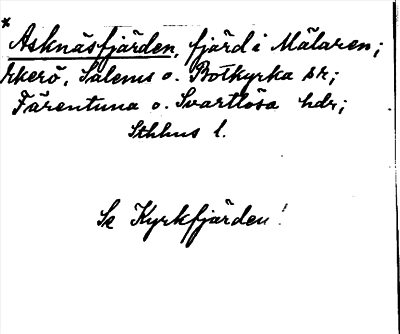 * Asknäsfjärden, fjärd i Mälaren;
Ekerö, Salems o. Botkyrka sr;
Färentuna o. Svartlösa hdr;
Sthlms l.
Se Kyrkfjärden!